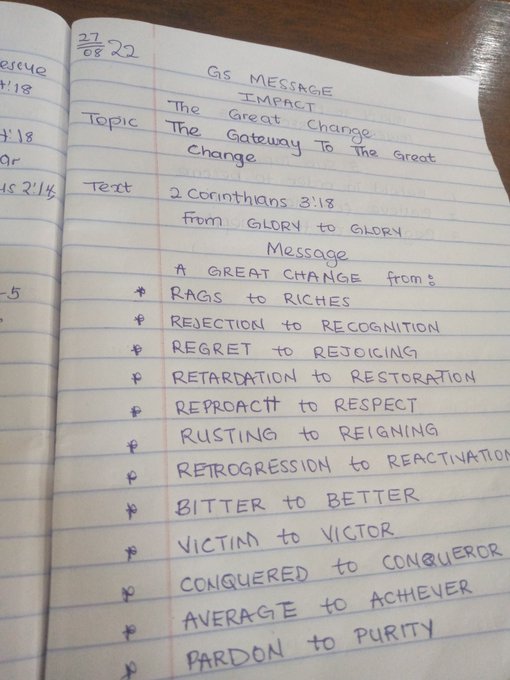 escue
t:18
t:18
ar
us 2:14
-5
27/08 22
GS MESSAGE
IMPACT
The Great Change
Topic The Gateway To The Great
Change
Text 2 Corinthians 3:18
From GLORY to GLORY
Message
A GREAT CHANGE from:
* RAGS to RICHES
* REJECTION to RECOGNITION
* REGRET to REJOICING
* RETARDATION to RESTORATION
* REPROACH to RESPECT
* RUSTING to REIGNING
* RETROGRESSION to REACTIVATION
* BITTER to BETTER
* VICTIM to VICTOR
* CONQUERED to CONQUEROR
* AVERAGE to ACHIEVER
* PARDON to PURITY